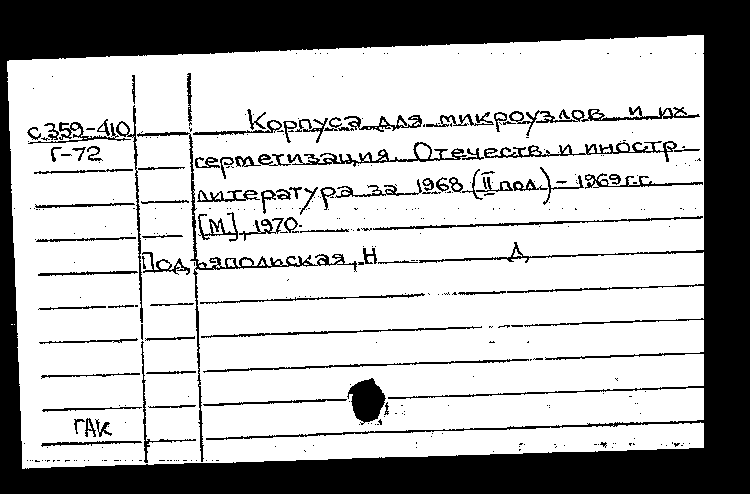 Корпуса для микроузлов и их
с359-410
Г-72
герметизация. Отечеств. и иностр.
литература за 1968 (II пол.) - 1969 г.г.
[М], 1970.
Подъяпольская, Н Д
ГАК